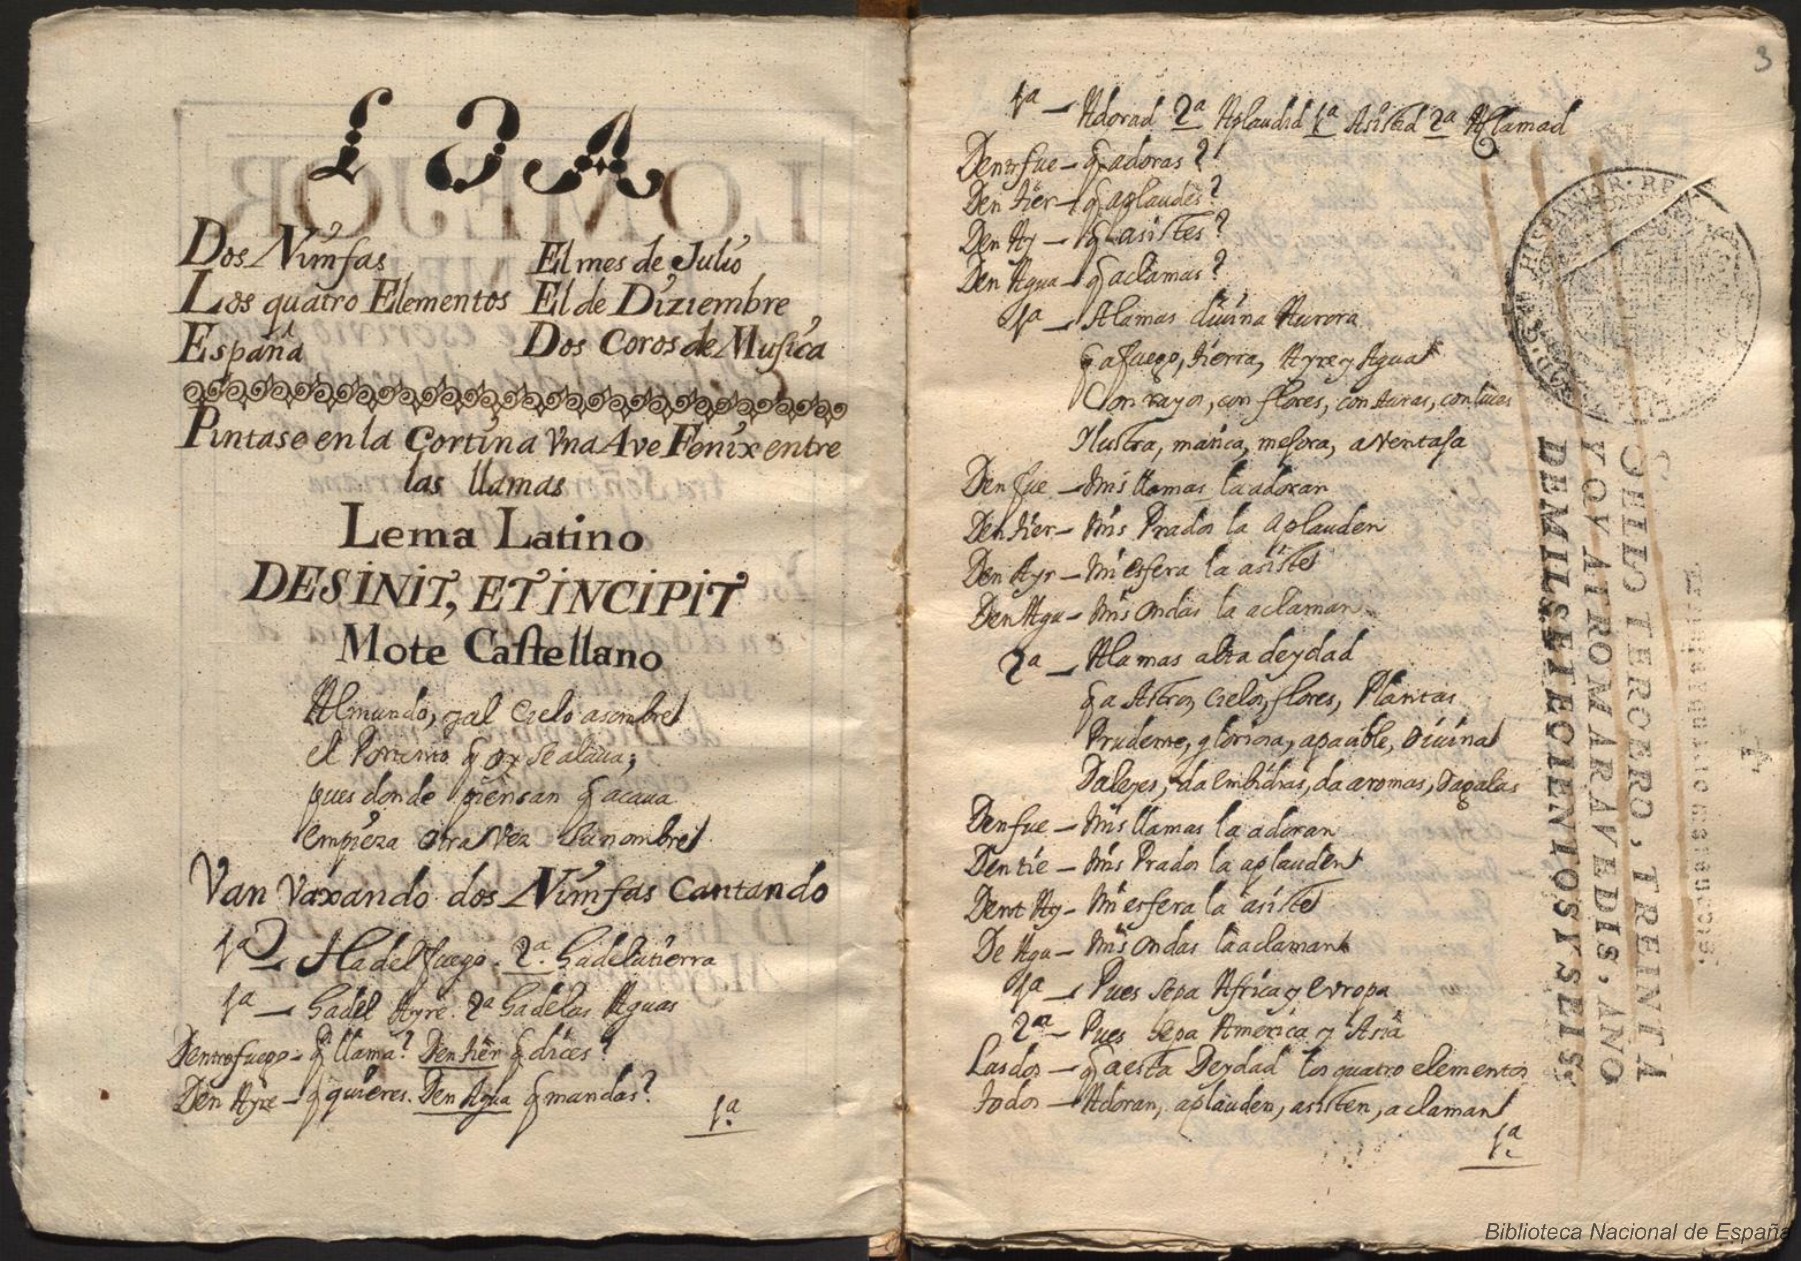 LOA
Dos Nimfas
Los quatro Elementos
España
El mes de Julio
El de Diziembre
Dos Coros de Musica
Pintase en la Cortina Vna Ave Fenix entre
las llamas
Lema Latino
DESINIT, ET INCIPIT
Mote Castellano
Al mundo, y al Cielo asombre
el Portento q oy se alava;
pues donde piensan q acava
empieza otra Vez su nombre
Van Vaxando dos Nimfas Cantando
1ª Ha del fuego. 2ª Ha de la tierra
1ª Ha del Ayre. 2ª Ha de las Aguas
Dentro fuego - q llama? Den tier q dices?
Den Ayre - q quieres. Den Agua q mandas?
1ª
3
1ª - Adorad 2ª Aplaudid 1ª Asistid 2ª Aclamad
Dentr fue - q adoras?
Den tier - q aplaudes?
Den Ay - q asistes?
Den Agua - q aclamas?
1ª - A la mas divina Aurora
q a fuego, tierra, Ayre y Agua
Con rayos, con flores, con Auras, con luces
Ilustra, matiza, mejora, aventaja
Den fue - Mis llamas la adoran
Den tier - Mis Prados la Aplauden
Den Ayr - Mi esfera la asiste
Den Agu - Mis ondas la aclaman
2ª - A la mas alta deydad
q a Astros, Cielos, flores, Plantas
Prudente, gloriosa, apacible, Divina
Da leyes, da embidias, da aromas, Da galas
Den fue - Mis llamas la adoran
Den tie - Mis Prados la aplauden
Dent Ay - Mi esfera la asiste
De Agu - Mis ondas la aclaman
1ª - Pues sepa Africa y Evropa
2ª - Pues sepa America y Asia
Las dos - q a esta Deydad los quatro elementos
Todos - Adoran, aplauden, asisten, aclaman
1ª
SELLO TERCERO, TREINTA
Y QVATRO MARAVEDIS, AÑO
DE MIL SETECIENTOS Y SEIS.
Biblioteca Nacional de España